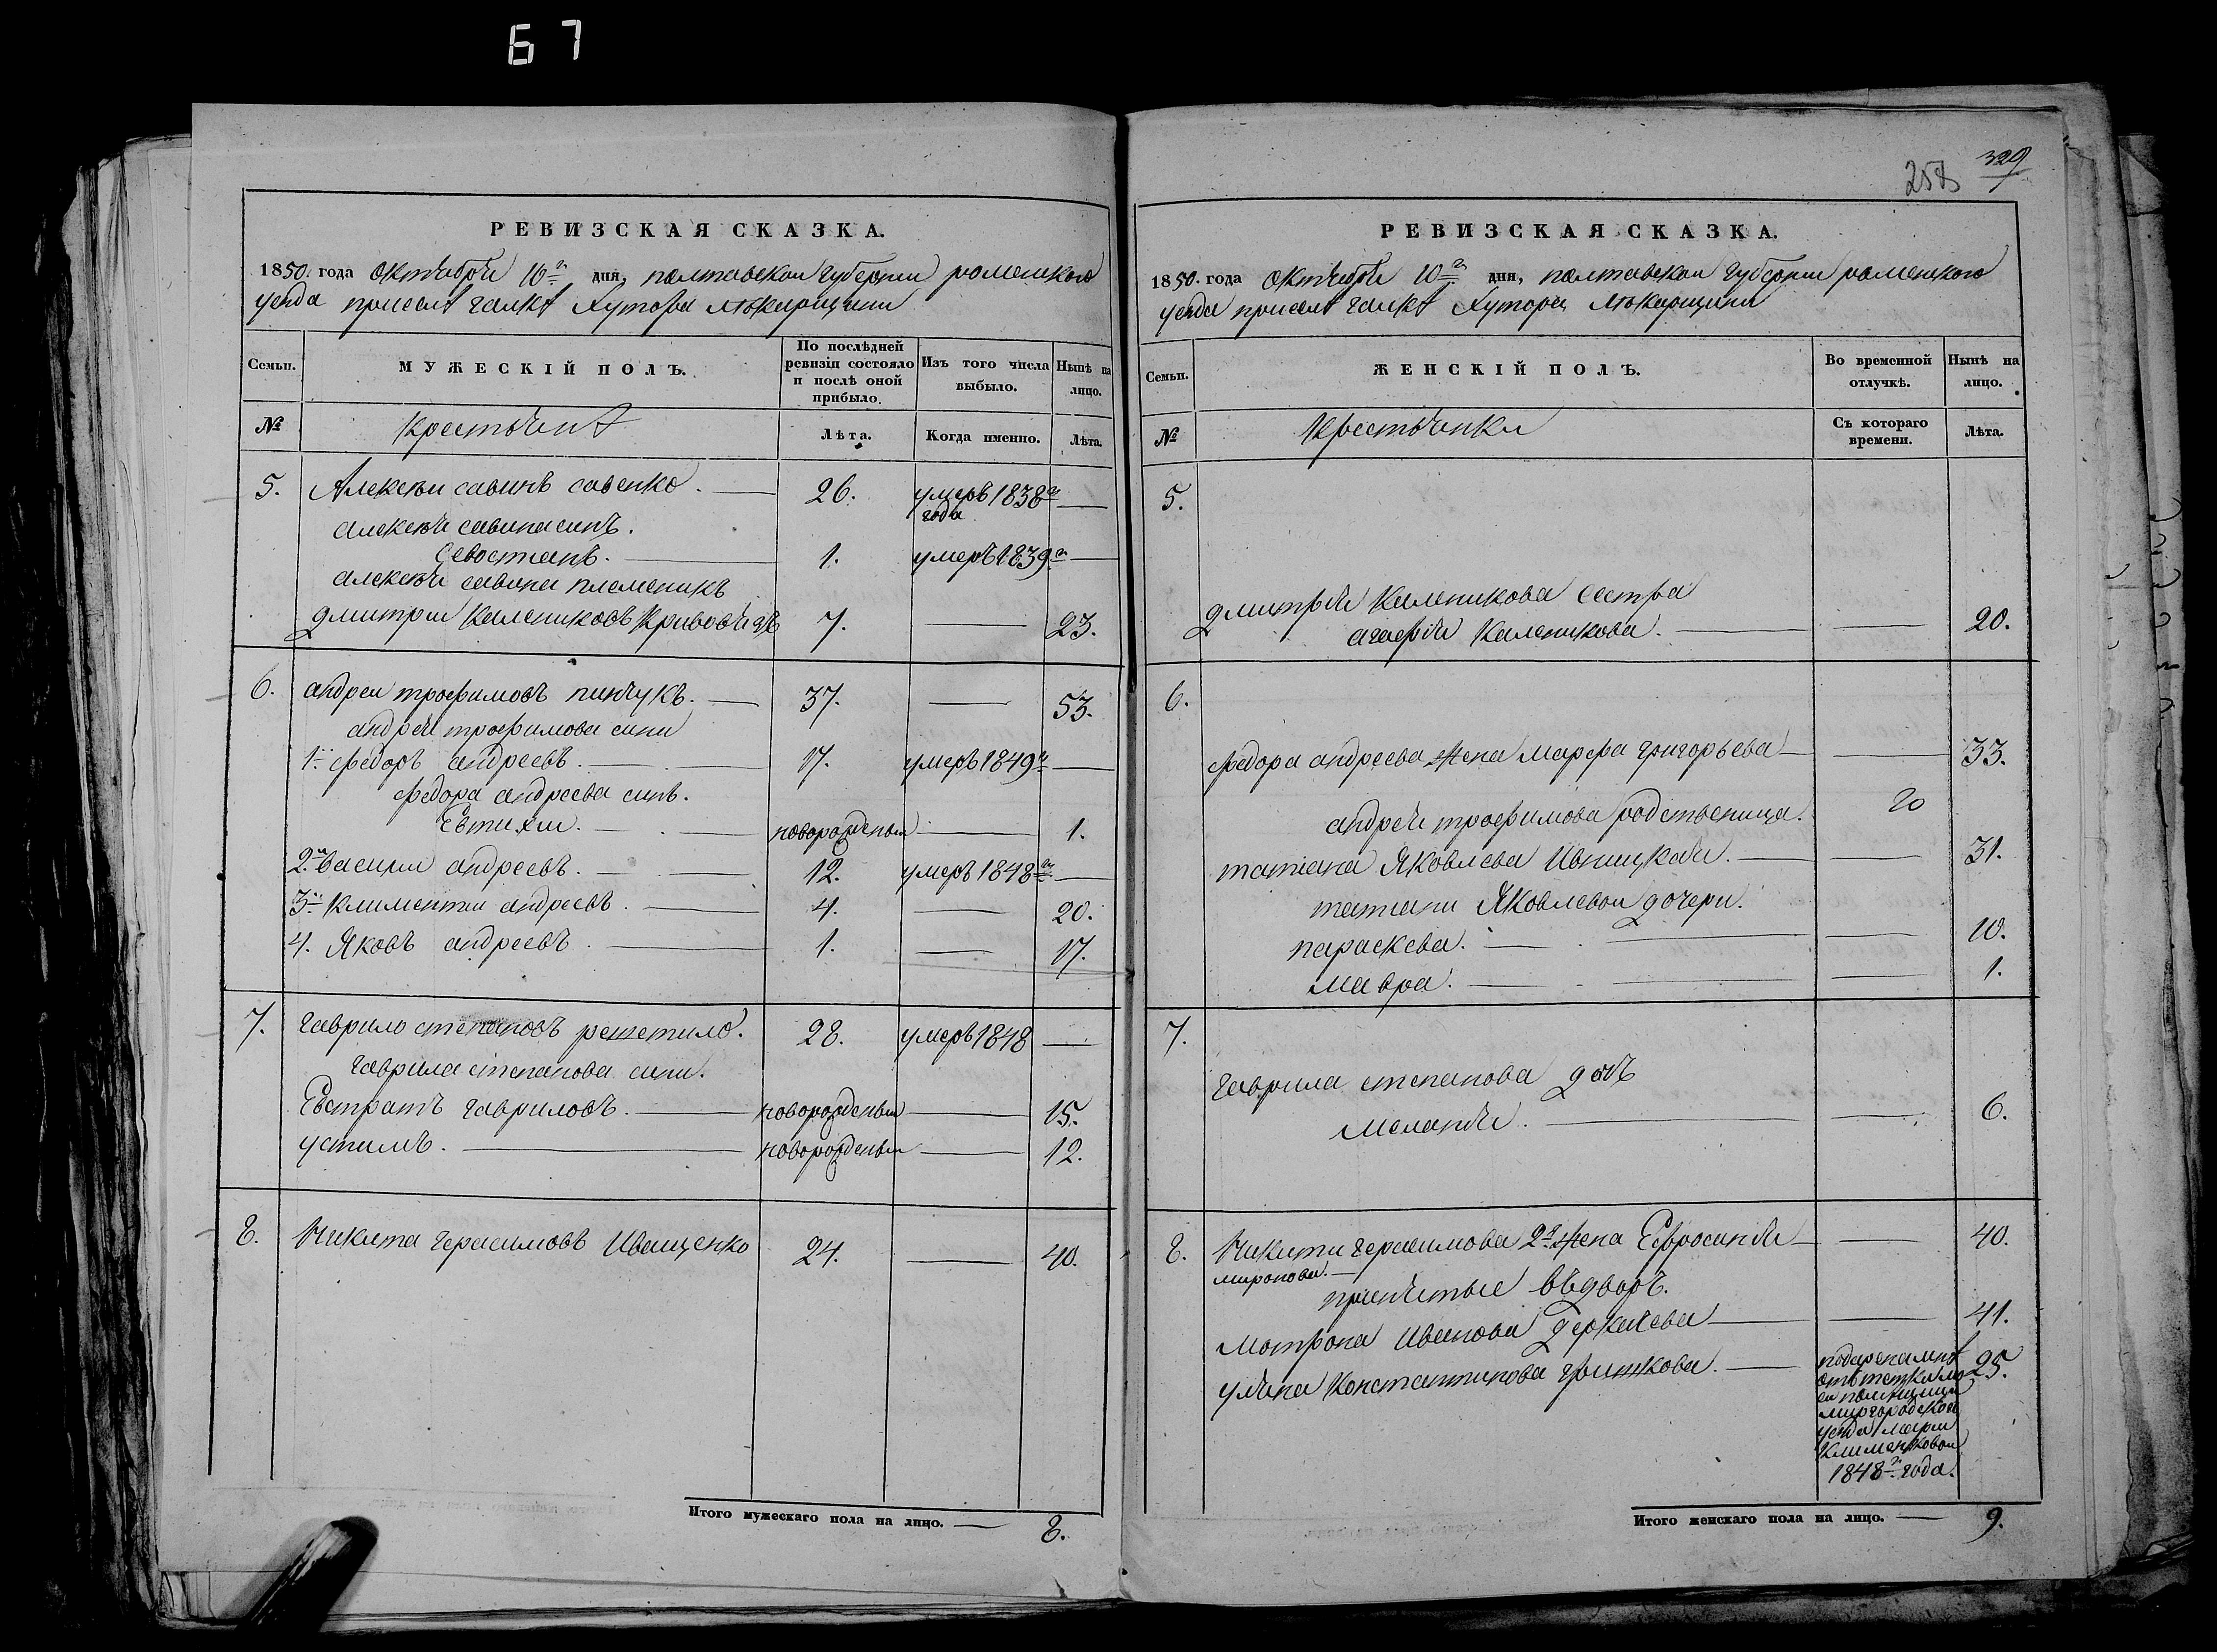 67
РЕВИЗСКАЯ СКАЗКА.
1850. года октября 10го дня, полтавской губернии роменского
уезда приселк галкѣ Хутора лѣкарщини
Семьи.
МУЖЕСКІЙ ПОЛЪ.
По послѣдней ревизіи состояло и послѣ оной прибыло.
Изъ того числа выбыло.
Нынѣ на лицо.
№
крестьяне
Лѣта.
Когда именно.
Лѣта.
5. Алексѣи савинъ савенко. 26. умеръ 1838го года
алексѣя савина синъ.
Севостианъ. 1. умеръ 1839го
алексѣя савина племеникъ
дмитрии калениковъ Кривобѣдъ 7. 23.
6. андреи трофимовъ пинчукъ. 37. 53.
андрея трофимова сини
1й федоръ андреевъ. 17. умеръ 1849го
федора андреева синъ.
Евтихи. новорожденыи 1.
2й василии андреевъ. 12. умеръ 1848го
3й климентии андреевъ. 4. 20.
4. Яковъ андреевъ. 1. 17.
7. гаврило степановъ решетило. 28. умеръ 1848
гаврила степанова сини.
Евстратъ гавриловъ. новорожденыи 15.
устимъ. новорожденыи 12.
8. Никита герасимовъ Иващенко 24. 40.
Итого мужескаго пола на лицо. 8.
258 329
РЕВИЗСКАЯ СКАЗКА.
1850. года октября 10го дня, полтавской губернии роменского
уезда приселк галкѣ Хутора лѣкарщини
Семьи.
ЖЕНСКІЙ ПОЛЪ.
Во временной отлучкѣ.
Нынѣ на лицо.
№
крестьянки
Съ котораго времени.
Лѣта.
5.
дмитрия каленикова сестра
агафия каленикова. 20.
6.
федора андреева жена Марфа григорьева 33.
андрея трофимова родственица. 20
татиана Яковлева Ивницкая. 31.
татиани Яковлевои дочери.
параскева. 10.
мавра. 1.
7.
гаврила степанова дочъ
мелания. 6.
8. Никити герасимова 2я жена Ефросиния 40.
миронова.
принятые въ дворъ.
мотрона иванова деркачева 41.
уляна константинова гришкова. подарена мнѣ 25.
отъ тетки мо
еи помѣщици
миргородского
уезда марии
Клименковои
1848го года.
Итого женскаго пола на лицо. 9.